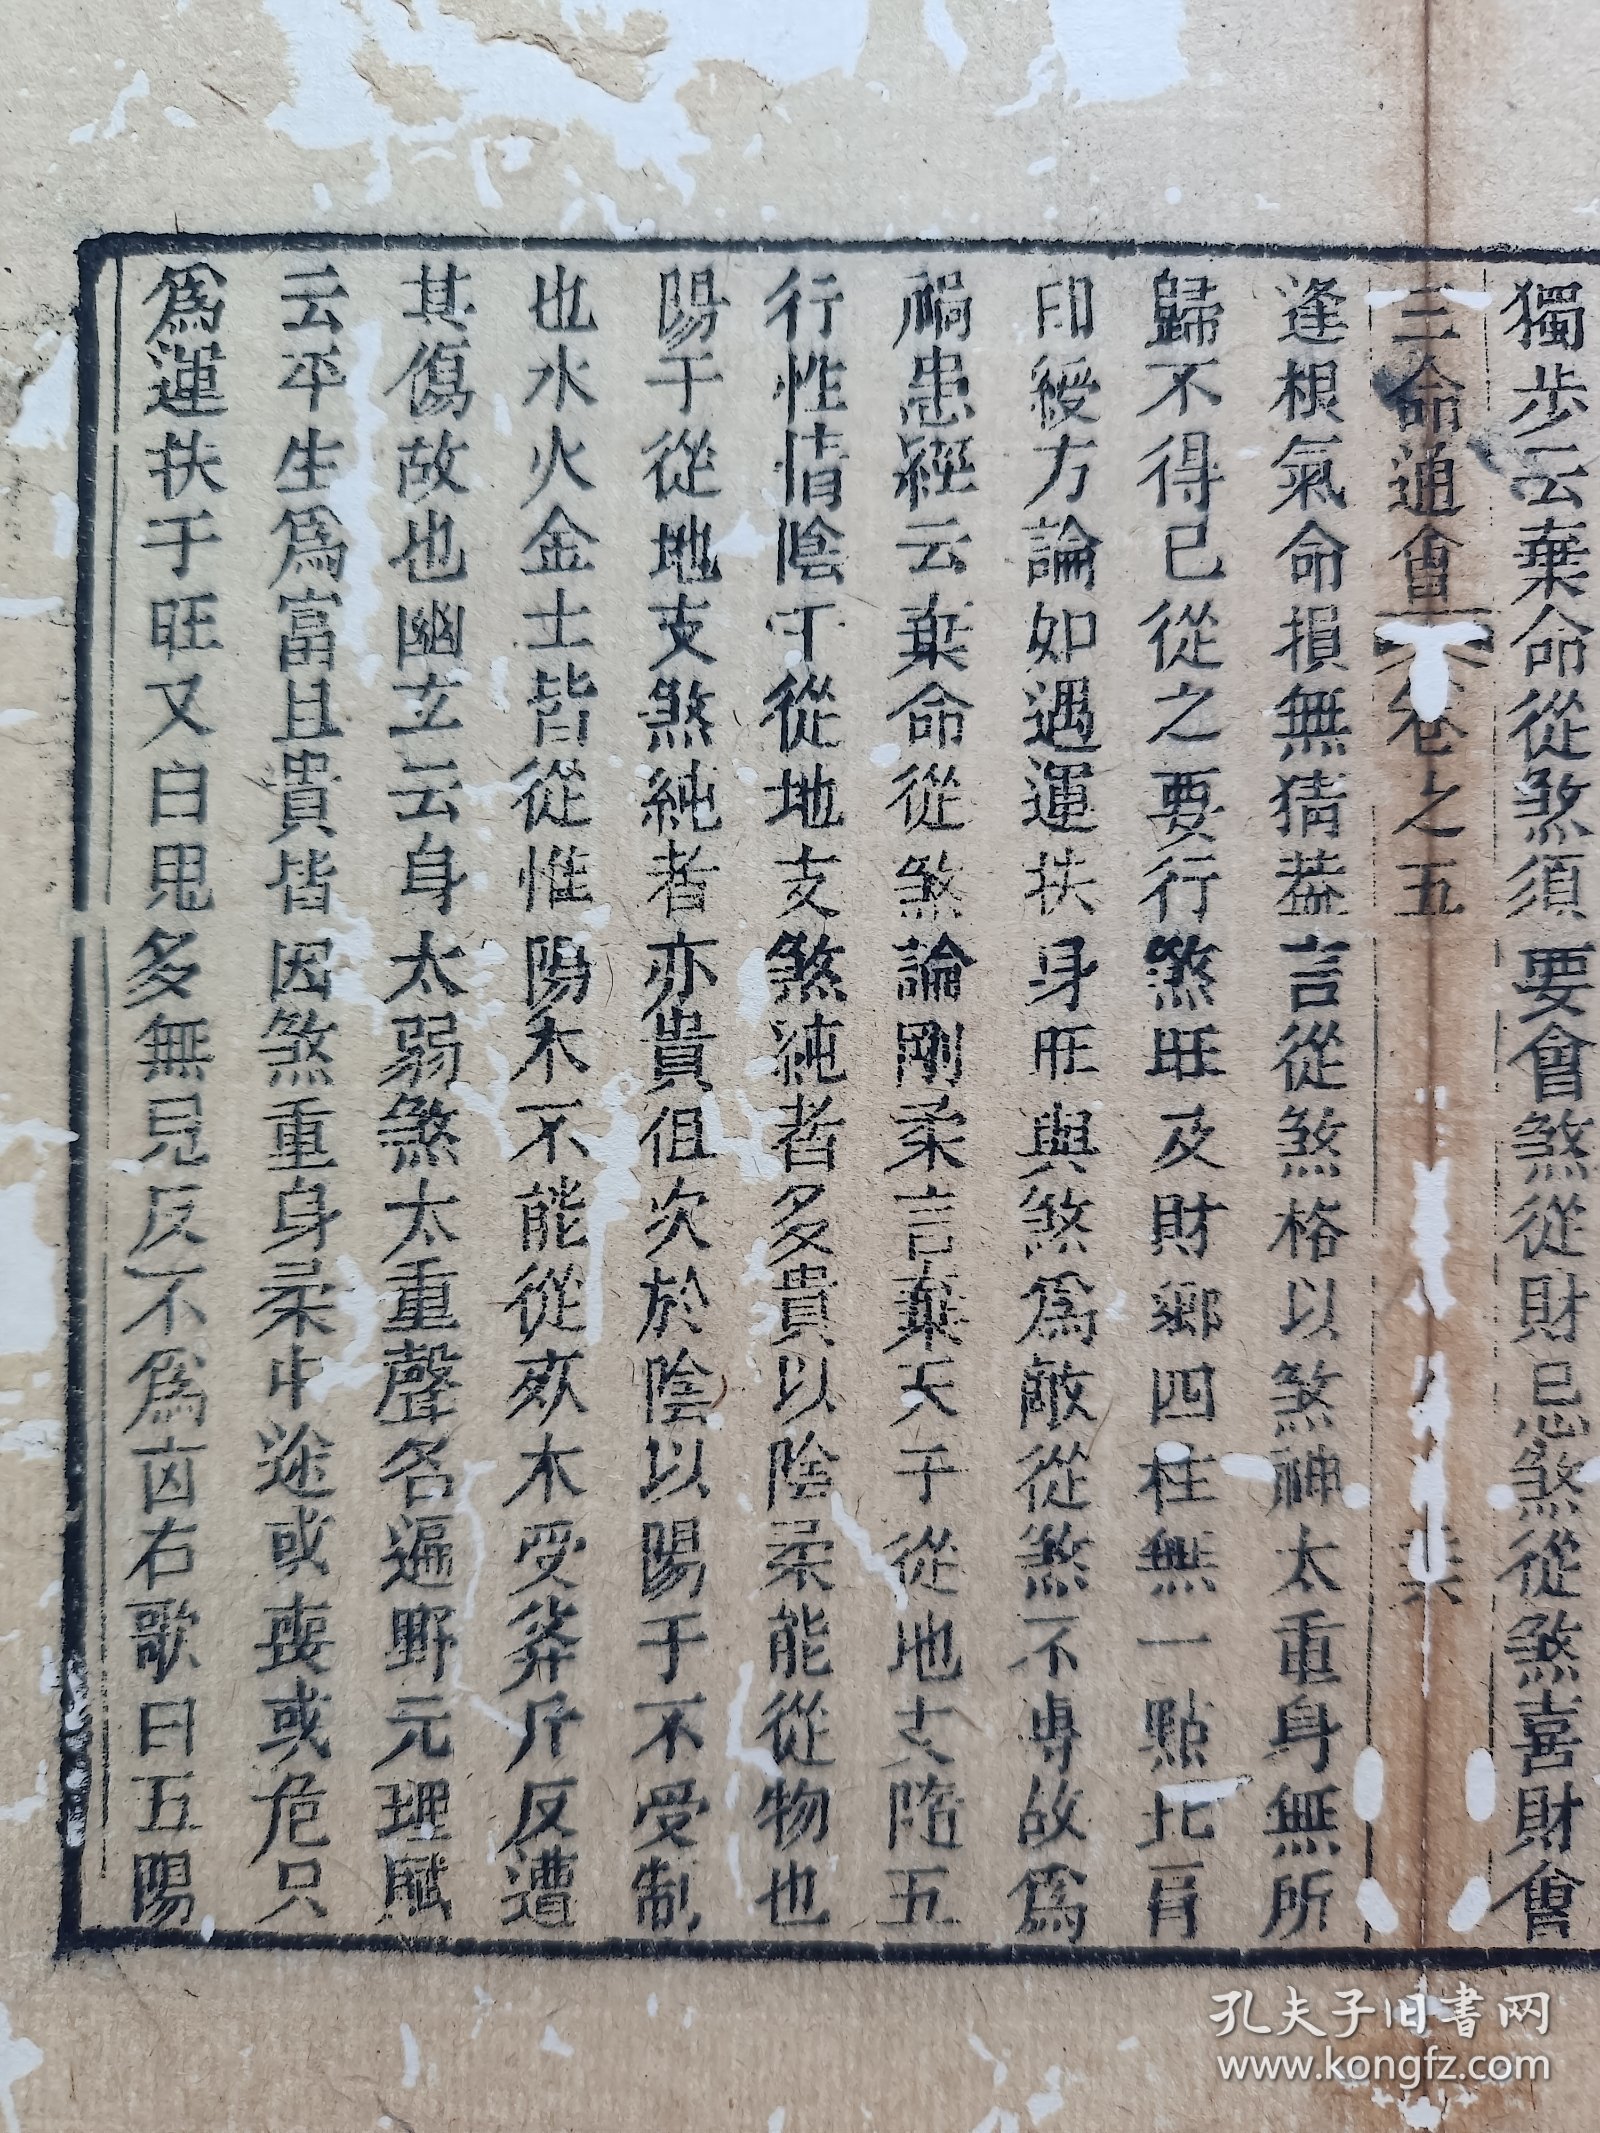 獨步云棄命從煞須要會煞從財忌煞從煞喜財會
三命通會 卷之五
逢根氣命損無猜葢言從煞格以煞神太重身無所
歸不得已從之要行煞旺及財鄉四柱無一點比肩
印綬方論如遇運扶身旺與煞爲敵從煞不專故爲
禍患經云棄命從煞論剛柔言棄天干從地支隨五
行性情陰干從地支煞純者多貴以陰柔能從物也
陽干從地支煞純者亦貴但次於陰以陽干不受制
也水火金土皆從惟陽木不能從死木受斧斤反遭
其傷故也幽玄云身太弱煞太重聲名遍野元理賦
云平生爲富且貴皆因煞重身柔中途或喪或危只
爲運扶干旺又曰鬼多無見反不爲凶右歌曰五陽
孔夫子旧书网
www.kongfz.com